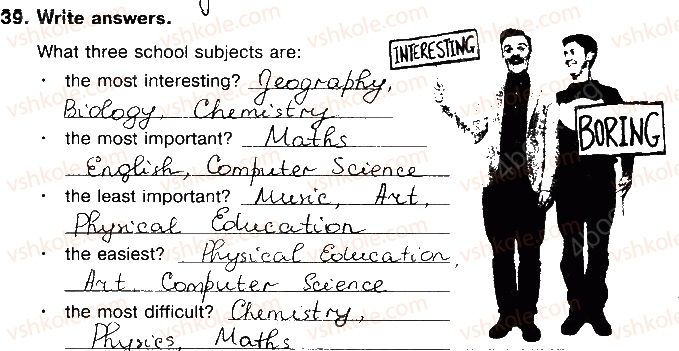 39. Write answers.
What three school subjects are:
• the most interesting? Geography,
Biology, Chemistry
INTERESTING
• the most important? Maths
English, Computer Science
BORING
• the least important? Music, Art,
Physical Education
• the easiest? Physical Education,
Art Computer Science
• the most difficult? Chemistry,
Physics, Maths
vshkole.com